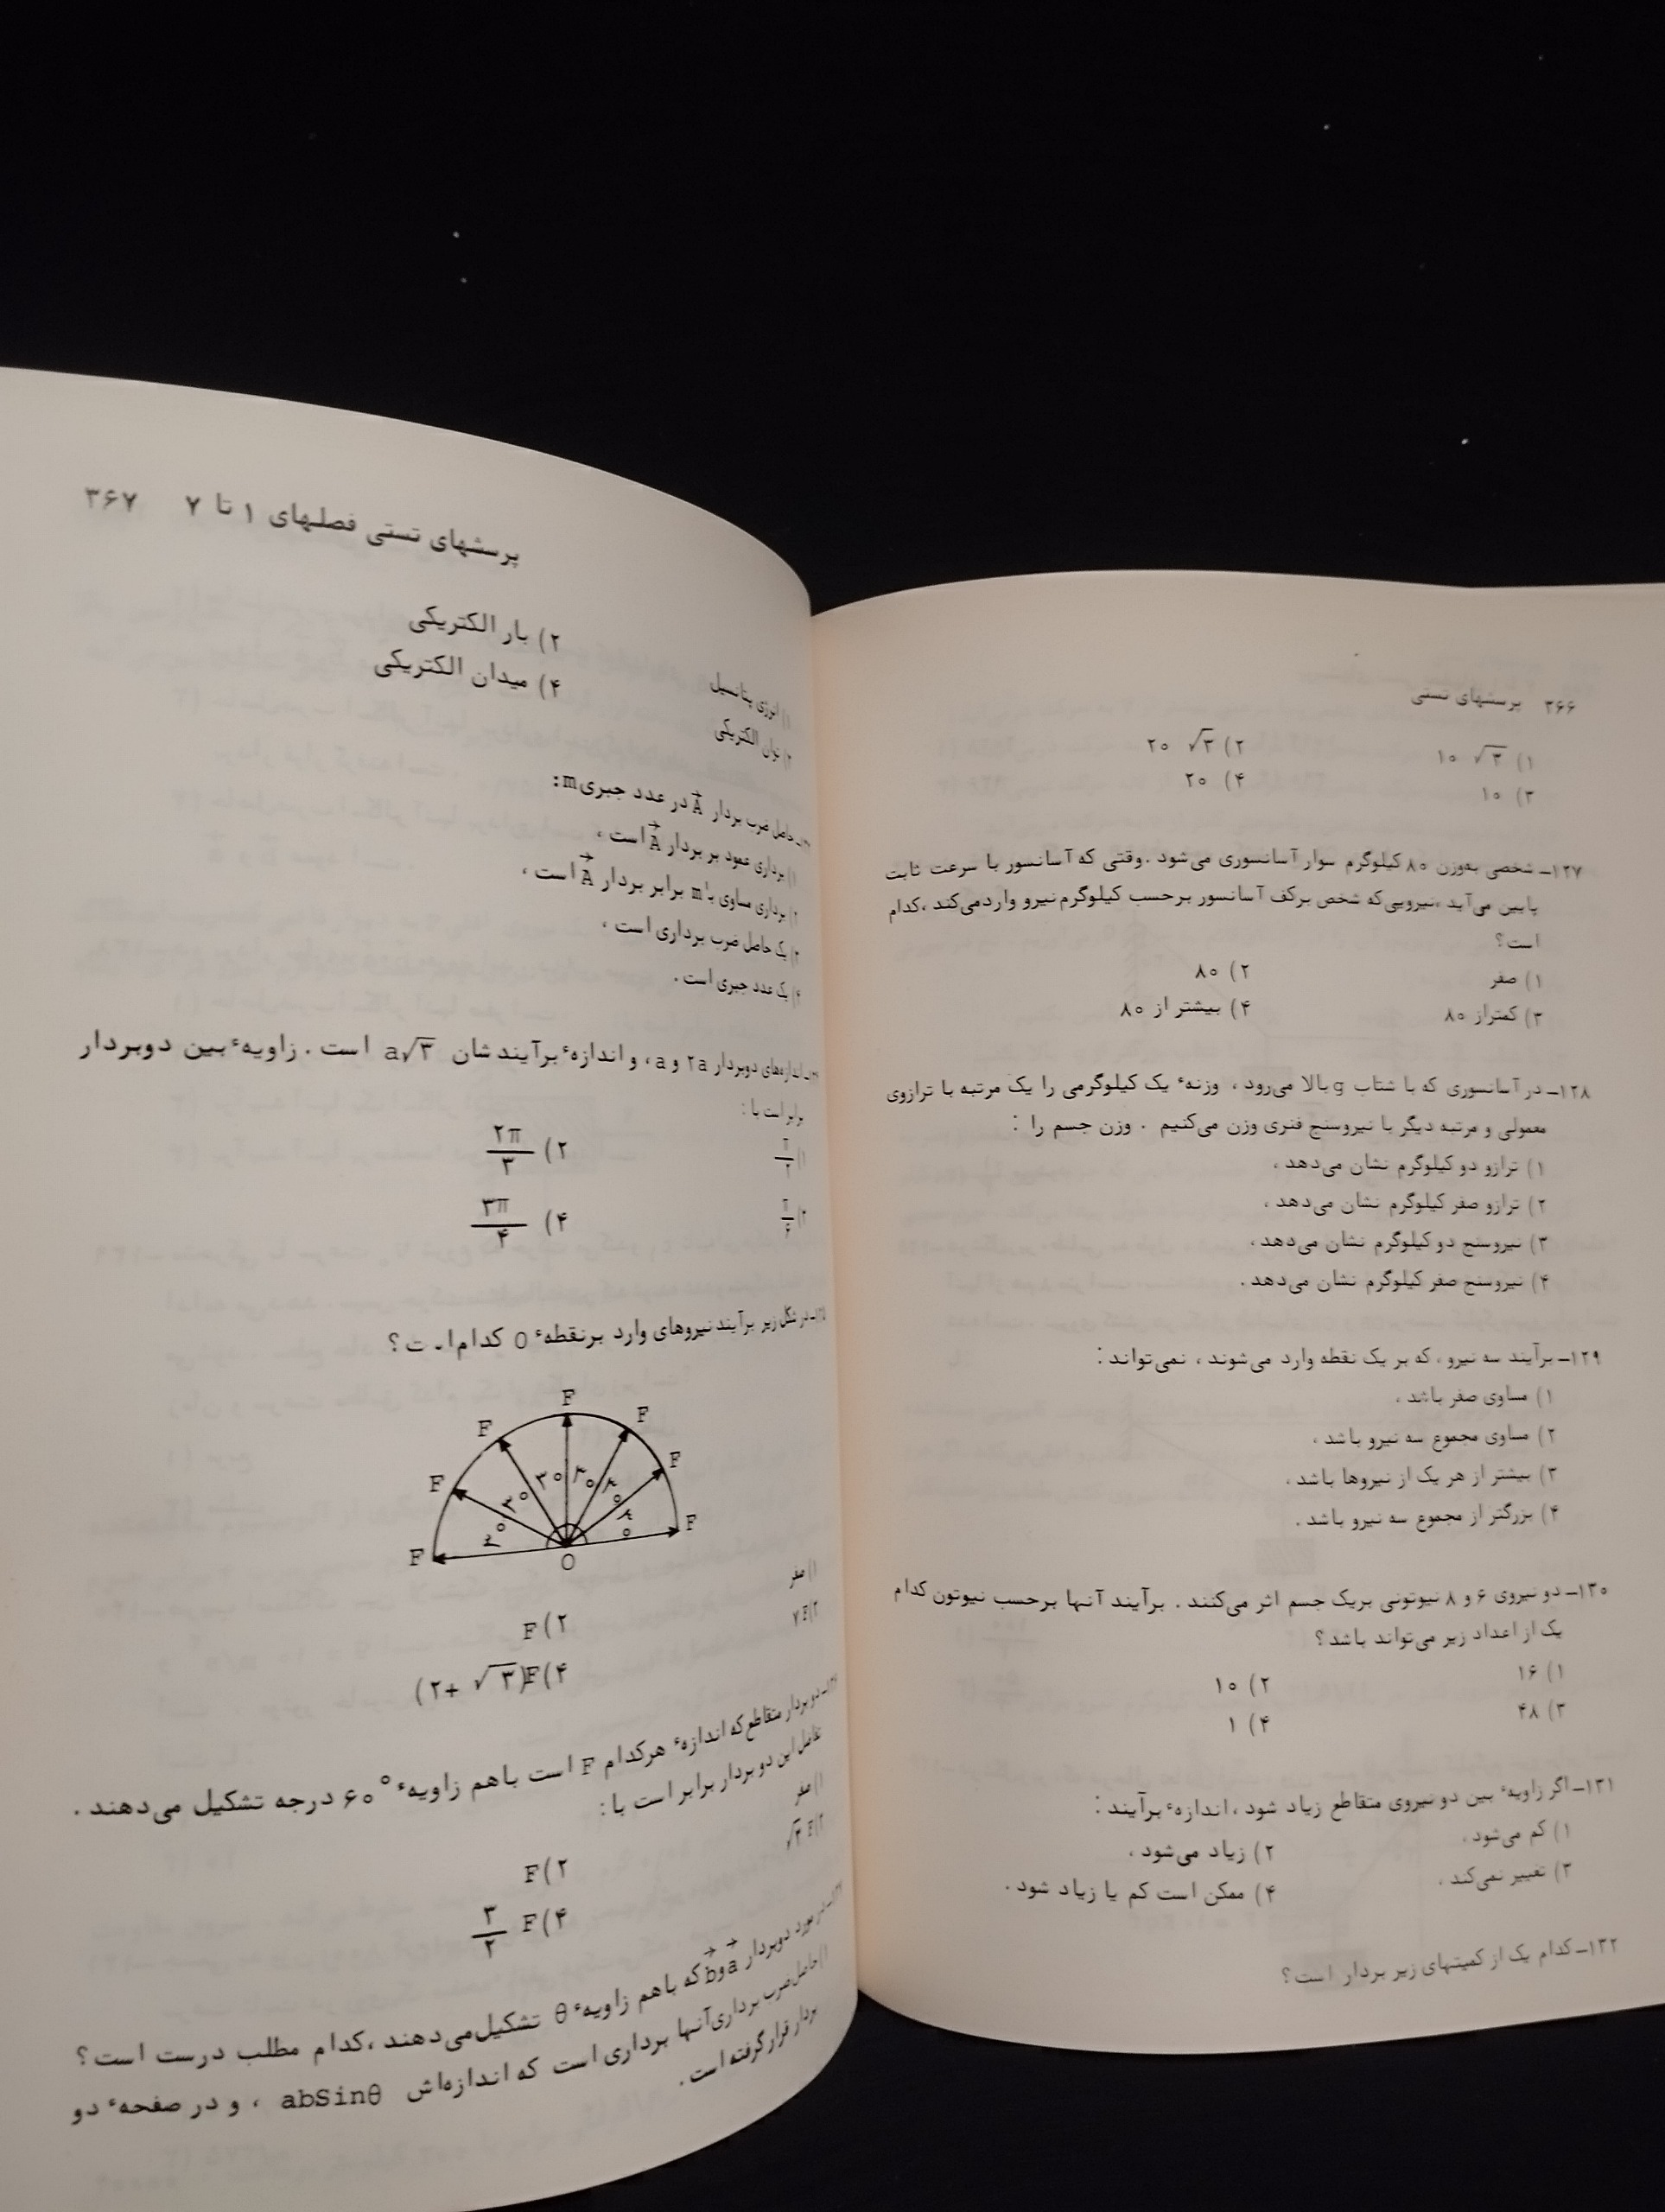 ۳۶۶ پرسشهای تستی
۱) ۱۰ √۳
۲) ۲۰ √۳
۳) ۱۰
۴) ۲۰
۱۲۷- شخصی به‌وزن ۸۰ کیلوگرم سوار آسانسوری می‌شود . وقتی که آسانسور با سرعت ثابت
پایین می‌آید ، نیرویی‌که شخص برکف آسانسور برحسب کیلوگرم‌نیرو واردمی‌کند ، کدام
است؟
۱) صفر
۲) ۸۰
۳) کمتراز ۸۰
۴) بیشتر از ۸۰
۱۲۸- در آسانسوری که با شتاب g بالا می‌رود ، وزنهٔ یک کیلوگرمی را یک مرتبه با ترازوی
معمولی و مرتبه دیگر با نیروسنج فنری وزن می‌کنیم . وزن جسم را :
۱) ترازو دو کیلوگرم نشان می‌دهد ،
۲) ترازو صفر کیلوگرم نشان می‌دهد ،
۳) نیروسنج دو کیلوگرم نشان می‌دهد ،
۴) نیروسنج صفر کیلوگرم نشان می‌دهد .
۱۲۹- برآیند سه نیرو ، که بر یک نقطه وارد می‌شوند ، نمی‌تواند :
۱) مساوی صفر باشد ،
۲) مساوی مجموع سه نیرو باشد ،
۳) بیشتر از هر یک از نیروها باشد ،
۴) بزرگتر از مجموع سه نیرو باشد .
۱۳۰- دو نیروی ۶ و ۸ نیوتونی بریک جسم اثر می‌کنند . برآیند آنها برحسب نیوتون کدام
یک از اعداد زیر می‌تواند باشد؟
۱) ۱۶
۲) ۱۰
۳) ۴۸
۴) ۱
۱۳۱- اگر زاویهٔ بین دو نیروی متقاطع زیاد شود ، اندازهٔ برآیند :
۱) کم می‌شود ،
۲) زیاد می‌شود ،
۳) تغییر نمی‌کند ،
۴) ممکن است کم یا زیاد شود .
۱۳۲- کدام یک از کمیتهای زیر بردار است؟
پرسشهای تستی فصلهای ۱ تا ۷ ۳۶۷
۱) انرژی پتانسیل
۲) بار الکتریکی
۳) توان الکتریکی
۴) میدان الکتریکی
حاصل ضرب بردار A⃗ در عدد جبری m:
۱) برداری عمود بر بردار A⃗ است ،
۲) برداری مساوی با m برابر بردار A⃗ است ،
۳) یک حاصل ضرب برداری است ،
۴) یک عدد جبری است .
اندازه‌های دوبردار ۲a و a ، و اندازهٔ برآیند شان a√۳ است . زاویهٔ بین دوبردار
برابر است با :
۱) π/۲
۲) ۲π/۳
۳) π/۶
۴) ۳π/۴
در شکل زیر برآیند نیروهای وارد برنقطهٔ O کدام ا ت ؟
F
F
F
F
F
F
F
۳۰
۳۰
۳۰
۳۰
۳۰
۳۰
O
۱) صفر
۲) F
۳) ۷F
۴) (۲+ √۳)F
دو بردار متقاطع که اندازهٔ هرکدام F است باهم زاویهٔ ۶۰° درجه تشکیل می‌دهند .
تفاضل این دو بردار برابر است با :
۱) صفر
۲) F
۳) F√۳
۴) F ۳/۲
در مورد دوبردار a⃗ و b⃗ که باهم زاویهٔ θ تشکیل‌می‌دهند ، کدام مطلب درست است؟
۱) حاصل‌ضرب برداری‌آنها برداری است که اندازه‌اش abSinθ ، و در صفحهٔ دو
بردار قرار گرفته است .